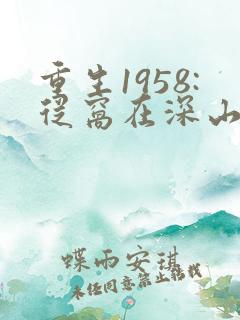 重生1958:
从窝在深山
蝶雨安琪
未经同意禁止转载